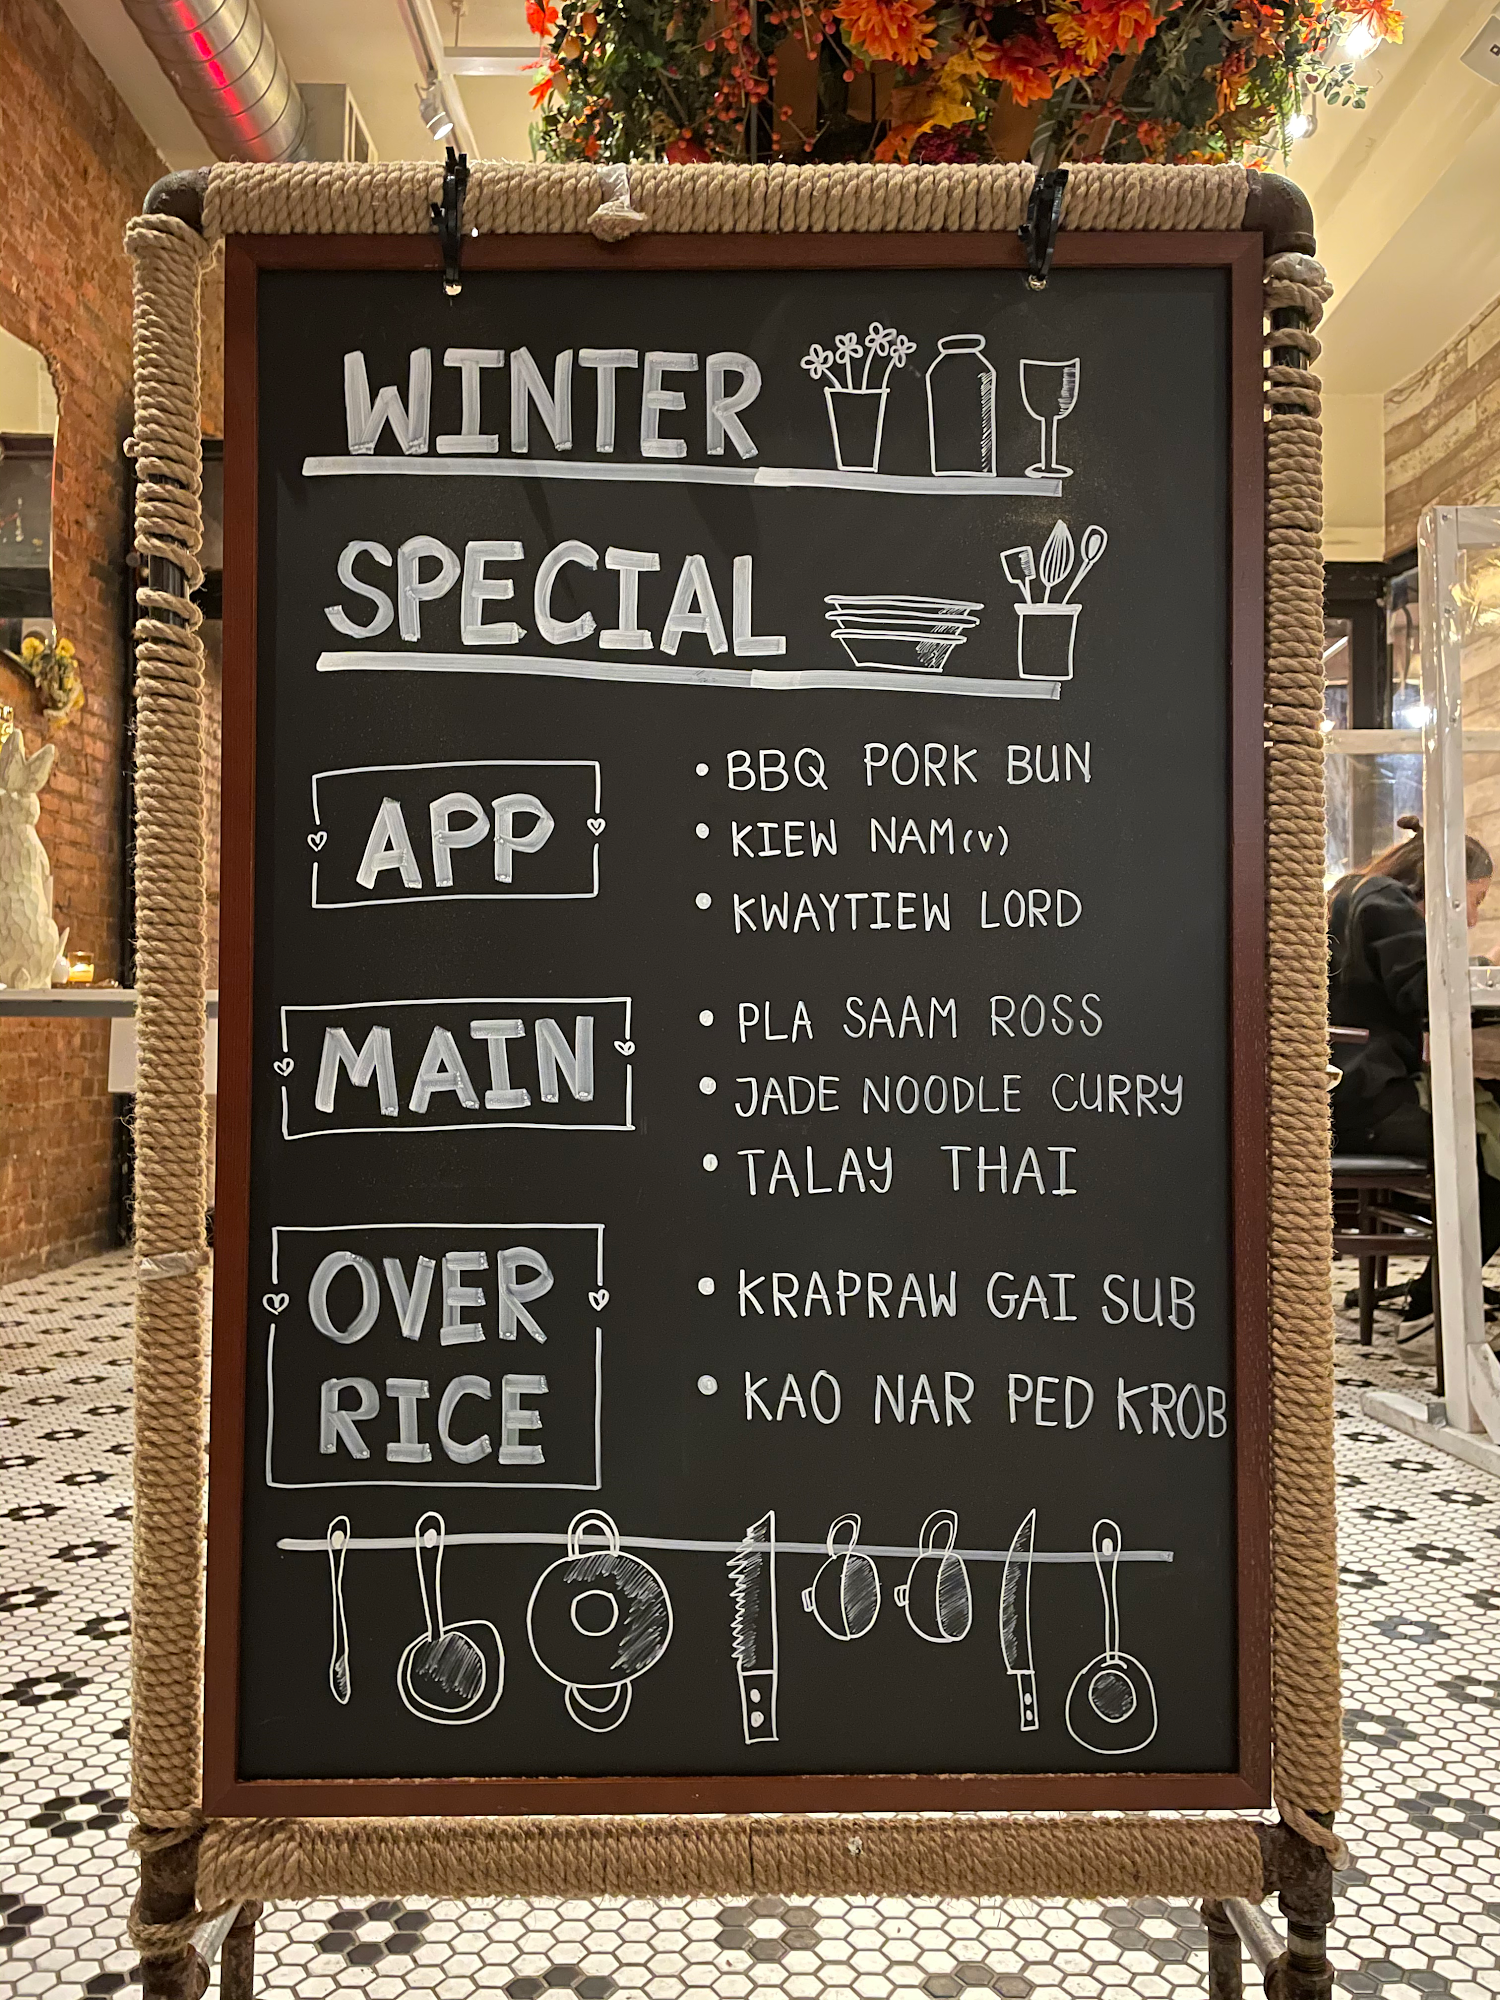 WINTER
SPECIAL
APP
• BBQ PORK BUN
• KIEW NAM(V)
• KWAYTIEW LORD
MAIN
• PLA SAAM ROSS
• JADE NOODLE CURRY
• TALAY THAI
OVER
RICE
• KRAPRAW GAI SUB
• KAO NAR PED KROB